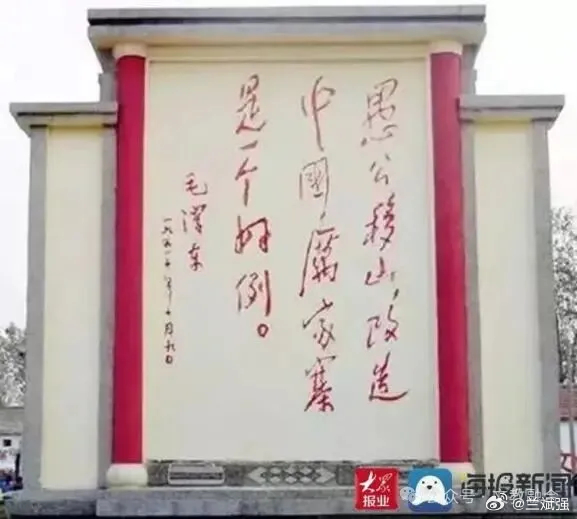 愚公移山，改造
中國，厲家寨
是一个好例。
毛澤东
一九五七年十月九日
大众
报业
海报新闻
公众号
@兰斌强